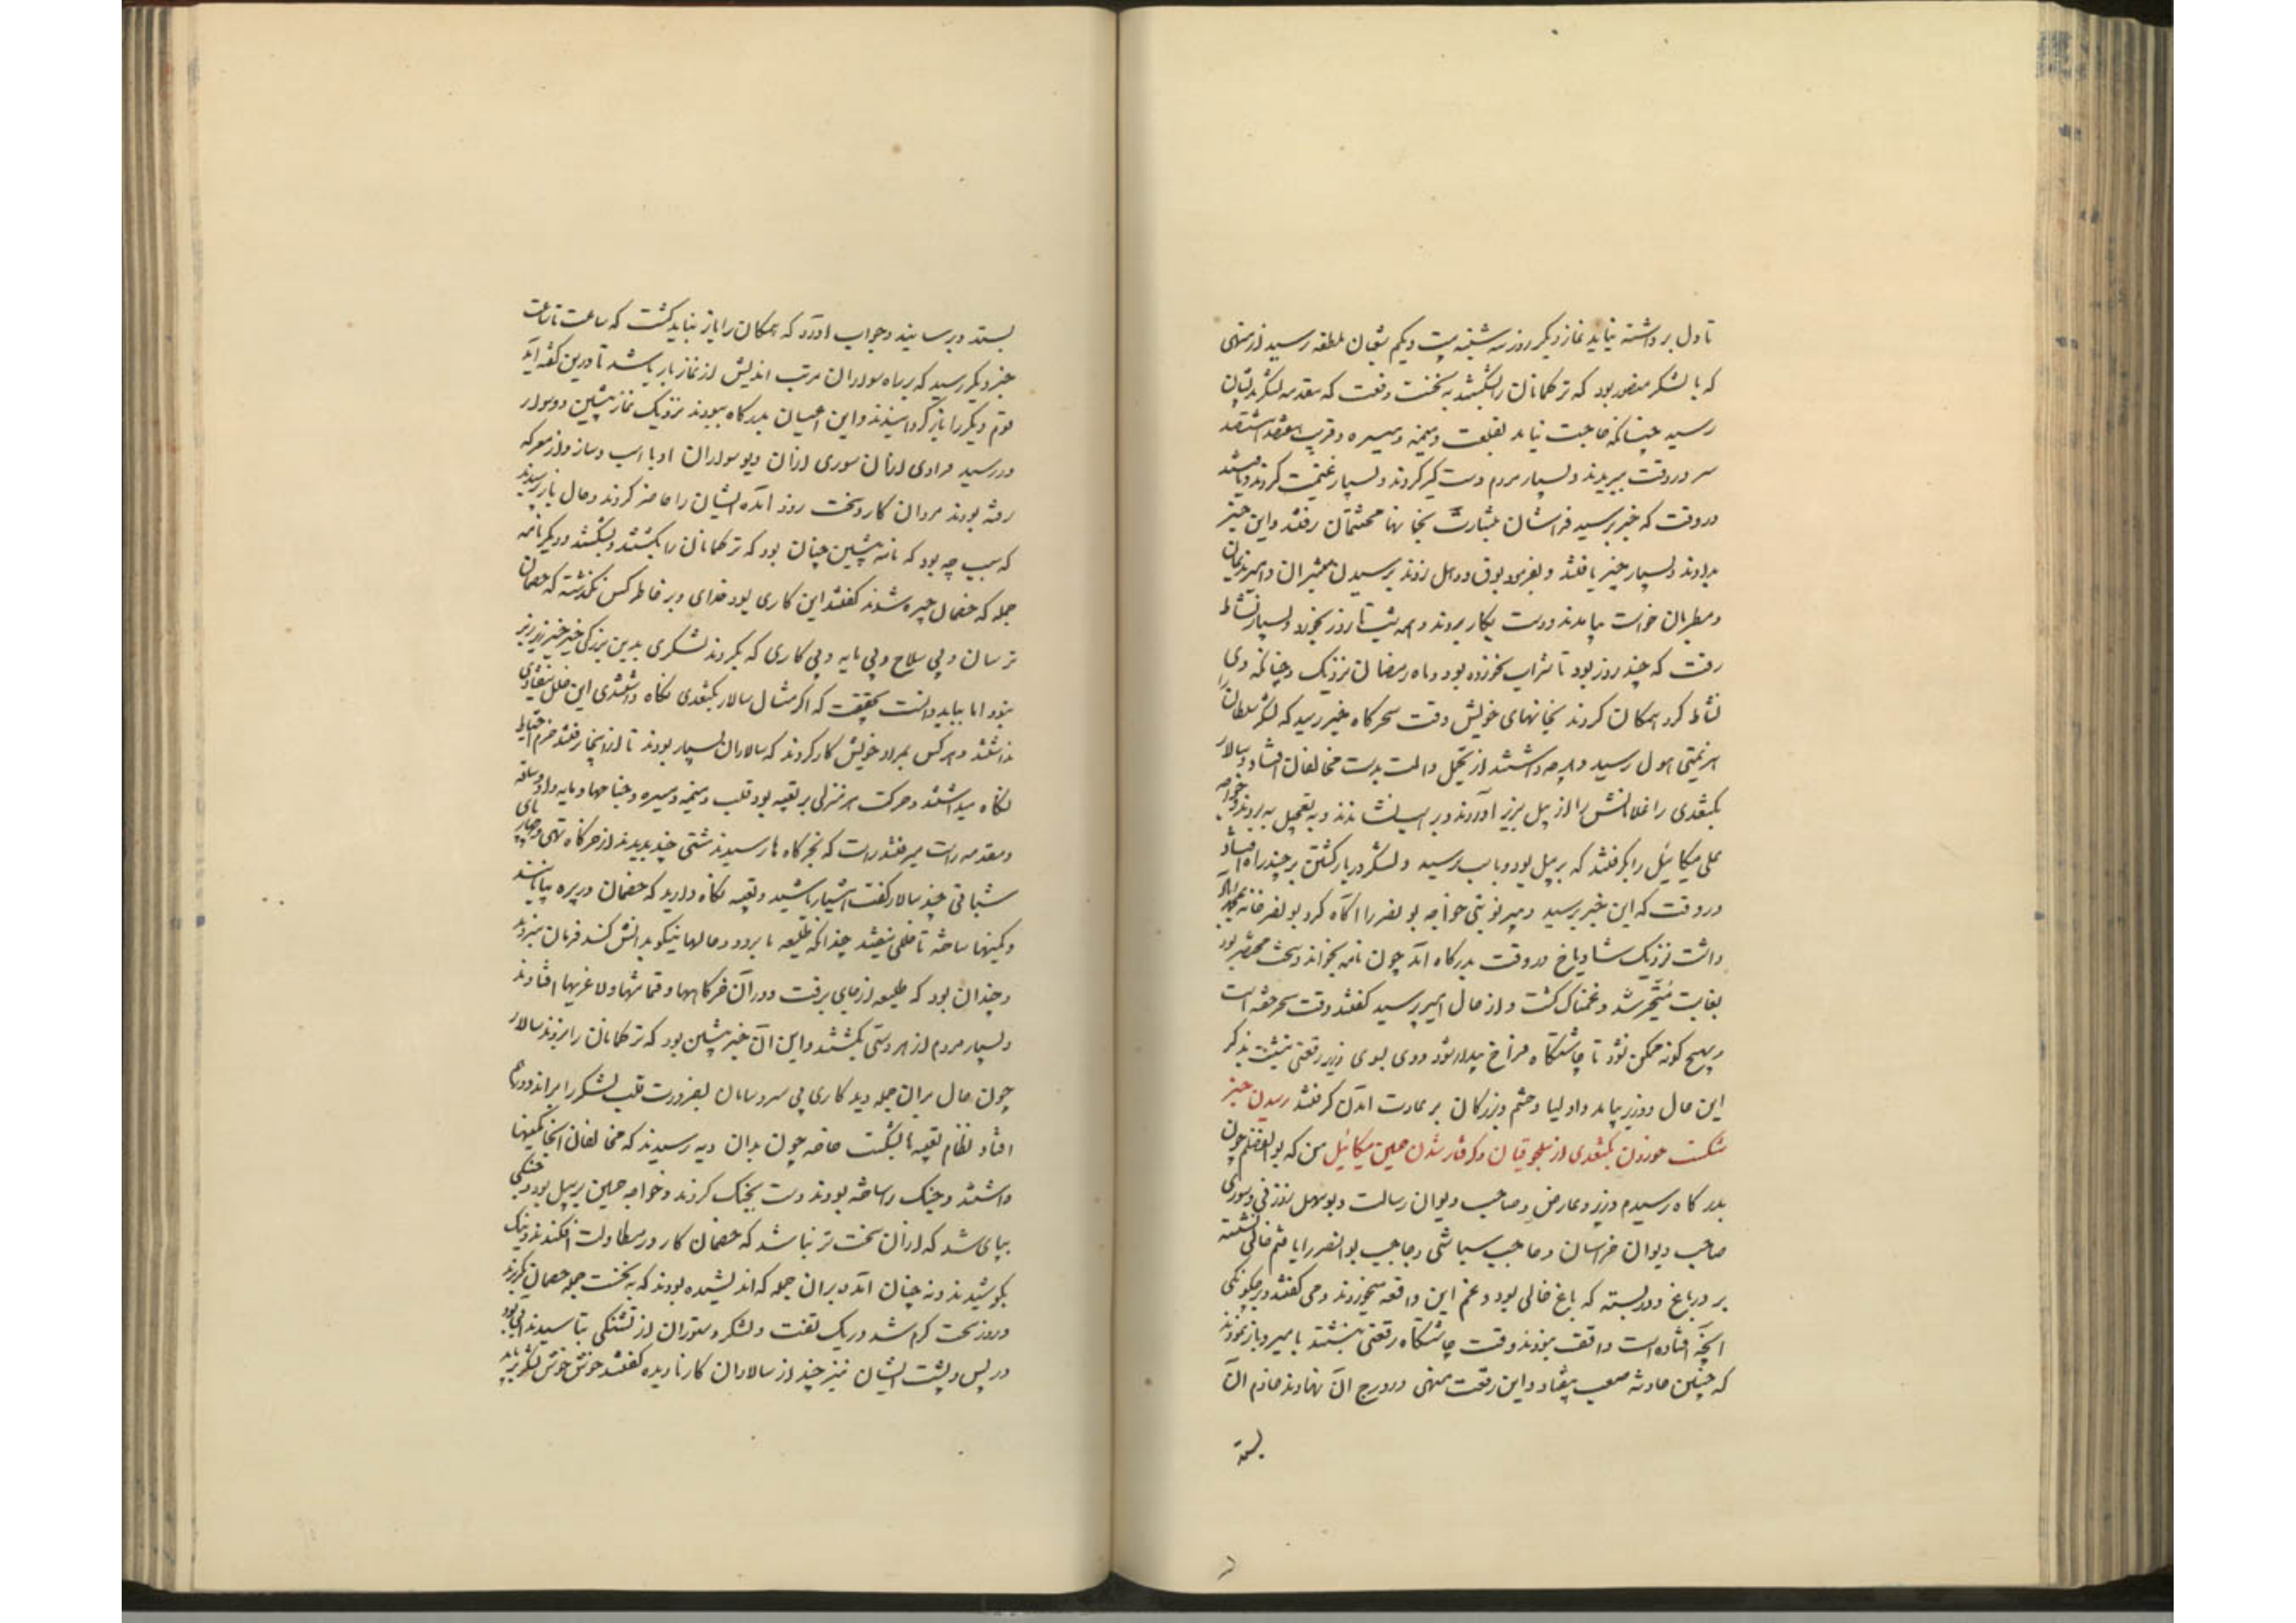 تا دل برداشته نیاید نماز دیگر روز سه شنبه بیست و یکم شعبان ملطفه رسید از منهی
که با لشکر منصور بود که ترکمانان را بشکستند به نخست دفعت که مقدمه لشکر بدیشان
رسید چنانکه حاجت نیاید بقلعت و میمنه و میسره و قریب هفتصد هشتصد
سر در وقت ببریدند و بسیار مردم دستگیر کردند و بسیار غنیمت کردند و یافتند
در وقت که خبر برسید فراشان بشارت بخانها محتشمان رفتند و این خبر
بدادند و بسیار چیز یافتند و بفرمود بوق و دهل زدند برسیدن مبشران و امیر ندیمان
و مطربان خواست بیامدند و دست بکار بردند و همه شب تا روز بخورد و بسیار نشاط
رفت که چند روز بود تا شراب نخورده بود و ماه رمضان نزدیک و چنانکه وی
نشاط کرد همکان کردند بخانهای خویش وقت سحرکاه خبر رسید که لشکر سلطان را
هزیمتی هول رسید و هرچه داشتند از تجمل و الت بدست مخالفان افتاد و سالار
بکتغدی را غلامانش را از پیل بزیر آوردند و بر اسب نشاندند و به تعجیل ببردند و خواجه
علی میکائیل را بگرفتند که بر پیل بود و باسب نرسید و لشکر در بازکشتن بر چند راه افتاد
در وقت که این خبر برسید دبیر نوبتی خواجه بونصر را آگاه کرد بونصر خانه بمحمدآباد
داشت نزدیک شادیاخ در وقت بدرکاه آمد چون نامه بخواند و سخت مختصر بود
بغایت متحیر شد و غمناک گشت و از حال امیر پرسید گفتند وقت سحر خفته است
و بهیچ گونه ممکن نشود تا چاشتگاه فراخ بیدار شود و وی بسوی وزیر رقعتی نبشت بذکر
این حال و وزیر بیامد و اولیا و حشم و بزرگان بر عادت آمدن گرفتند رسیدن خبر
شکست خوردن بکتغدی از سلجوقیان و گرفتار شدن حسین میکائیل من که بوالفضلم چون
بدر کاه رسیدم وزیر و عارض و صاحب دیوان رسالت و بوسهل زوزنی و سوری
صاحب دیوان خراسان و حاجب سباشی و حاجب بوالنضر را یافتم خالی نشسته
بر در باغ و در بسته که باغ خالی بود و غم این واقعه میخوردند و می گفتند و بر چگونگی
آنچه افتاده است واقف نبودند وقت چاشتگاه رقعتی نبشتند بامیر و بازنمودند
که چنین حادثه صعب بیفتاد و این رقعت منهی در درج آن نهادند خادم آن
بستد
بستد و برسانید و جواب آورد که همکان را باز نباید گشت که ساعت تا ساعت
خبر دیگر رسید که بر راه سواران مرتب اندیش از نماز بار باشد تا درین گفته آید
قوم دیگر را بازگردانیدند و این اعیان بدرگاه ببودند نزدیک نماز پیشین دو سوار
در رسید فرادی ازان سوری ازان دیو سواران او با اسب و ساز و از معرکه
رفته بودند مردان کار و سخت زود آمده ایشان را حاضر کردند و حال باز پرسیدند
که سبب چه بود که نامه پیشین چنان بود که ترکمانان را بکشتند و بشکستند و دیگر نامه
جمله که خصمان چیره شدند گفتند این کاری بود خدای و بر خاطر کس نگذشته که خصمان
ترسان و بی سلاح و بی مایه و بی کاری که بکردند لشکری بدین بزرگی خیر خیر زیر و زبر
شود اما بباید دانست بحقیقت که اگر مثال سالار بکتغدی نگاه داشتندی این خلل نیفتادی
نداشتند و هر کس بمراد خویش کار کردند که سالاران بسیار بودند تا از اینجا رفتند حزم و احتیاط
نگاه میداشتند و حرکت هر منزلی بر تعبیه بود قلب و میمنه و میسره و جناحها و مایه دار و ساقه
و مقدمه راست میرفتند راست که بخرگاه ها رسیدند مشتی چند بدیدند از خرگاه تهی و چهار پای
شبانی چند سالار گفت هشیار باشید و تعبیه نگاه دارید که خصمان در پره بیابانند
و کمینها ساخته تا خللی نیفتد چندانکه طلیعه ما برود و حالها نیکو بدانش کند فرمان نبردند
و چندان بود که طلیعه از جای برفت و در آن خرگاهها و قماشها و لاغریها افتادند
و بسیار مردم از هر دستی بکشتند و این آن خبر پیشین بود که ترکمانان را بزدند سالار
چون حال بران جمله دید کاری بی سر و سامان بضرورت قلب لشکر را براند و درهم
افتاد و نظام تعبیه ها بشکست خاصه چون بدان دیه رسیدند که مخالفان آنجا کمینها
داشتند و جنگ را ساخته بودند دست بجنگ کردند و خواجه حسین بر پیل بود و جنگی
بپای شد که ازان سخت تر نباشد که خصمان کار در مطاولت افکندند و نیک
بکوشیدند و نه چنان آمد بران جمله که اندیشیده بودند که به نخست حمله خصمان بگریزند
و روز سخت گرم شد و ریگ بتفت و لشکر و ستوران از تشنگی بتاسیدند آبی بود
در پس و پشت ایشان نیز چند از سالاران کار نادیده گفتند خوش خوش لشکر بر باید